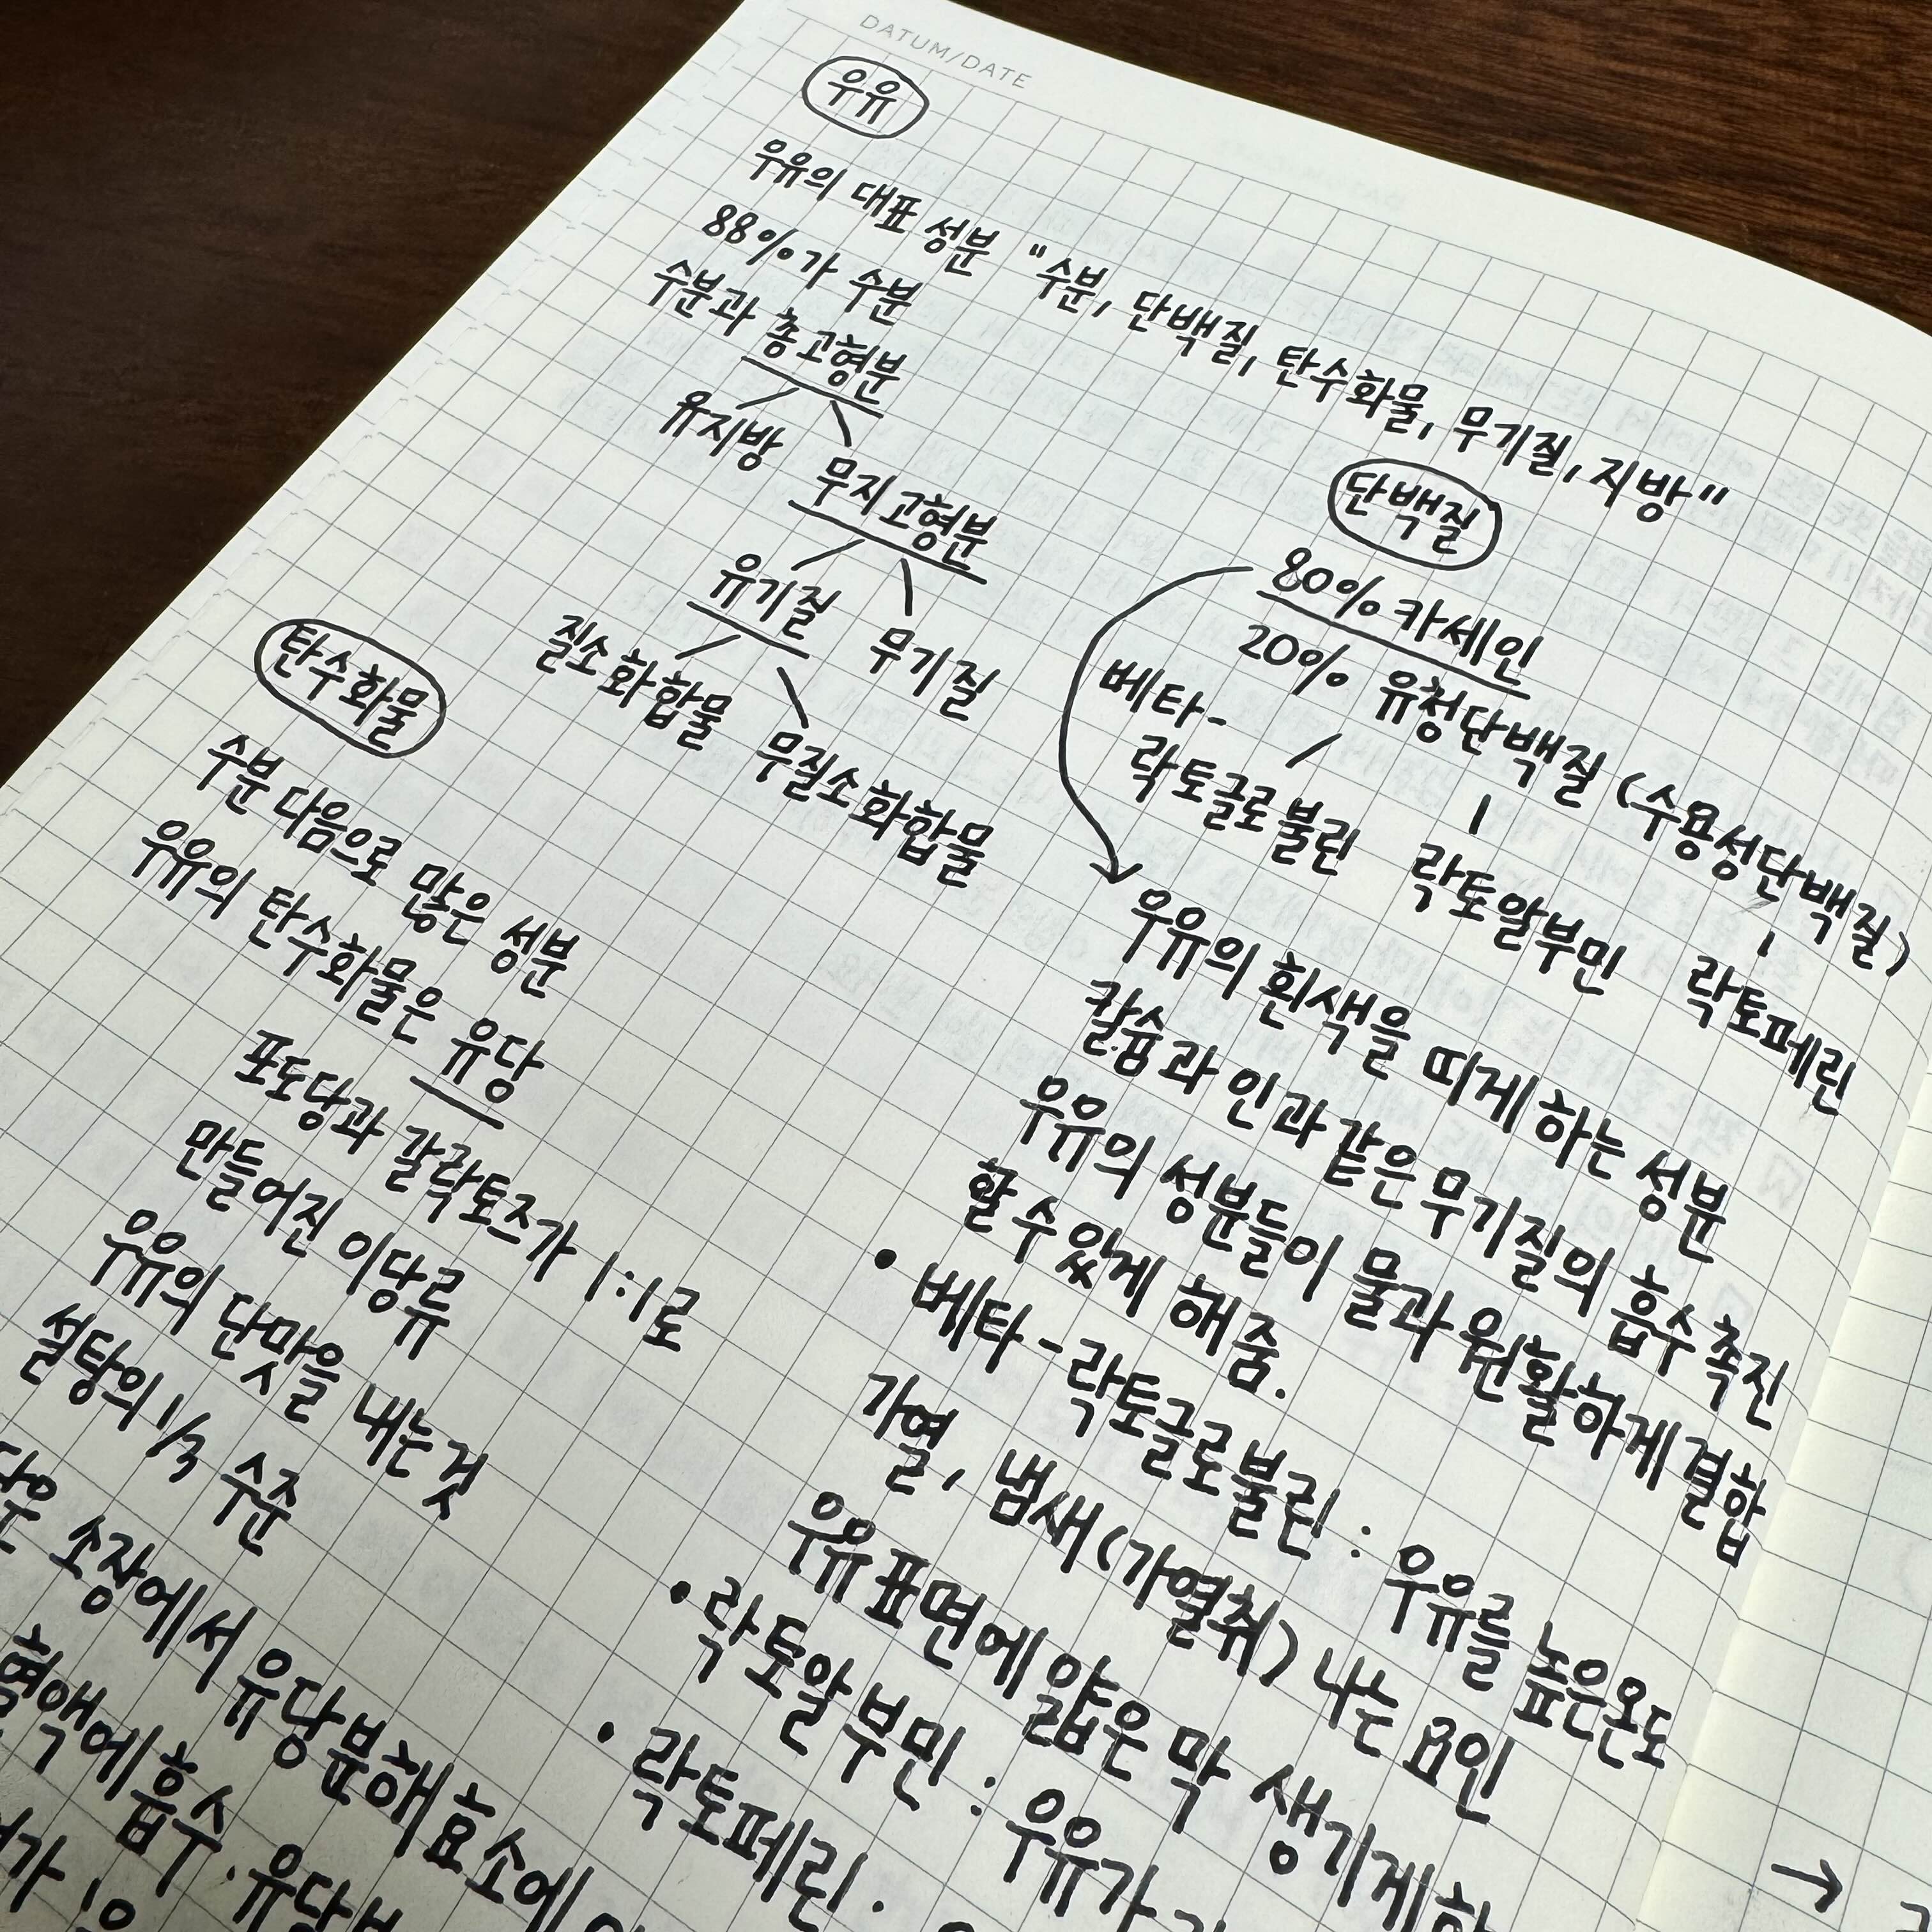 DATUM/DATE
우유
우유의 대표 성분 "수분, 단백질, 탄수화물, 무기질, 지방"
88%가 수분
수분과 총고형분
유지방 무지고형분
유기질 무기질
질소화합물 무질소화합물
단백질
80% 카세인
20% 유청단백질 (수용성단백질)
베타-
락토글로불린 락토알부민 락토페린
우유의 흰색을 띠게 하는 성분
칼슘과 인과 같은 무기질의 흡수 촉진
우유의 성분들이 물과 원활하게 결합
할 수 있게 해줌.
• 베타-락토글로불린 : 우유를 높은온도
가열, 냄새(가열취) 나는 요인
우유 표면에 얇은 막 생기게
• 락토알부민 : 우유가
• 락토페린
탄수화물
수분 다음으로 많은 성분
우유의 탄수화물은 유당
포도당과 갈락토즈가 1:1로
만들어진 이당류
우유의 단맛을 내는것
설탕의 1/3 수준
소장에서 유당분해효소에
혈액에 흡수.
→